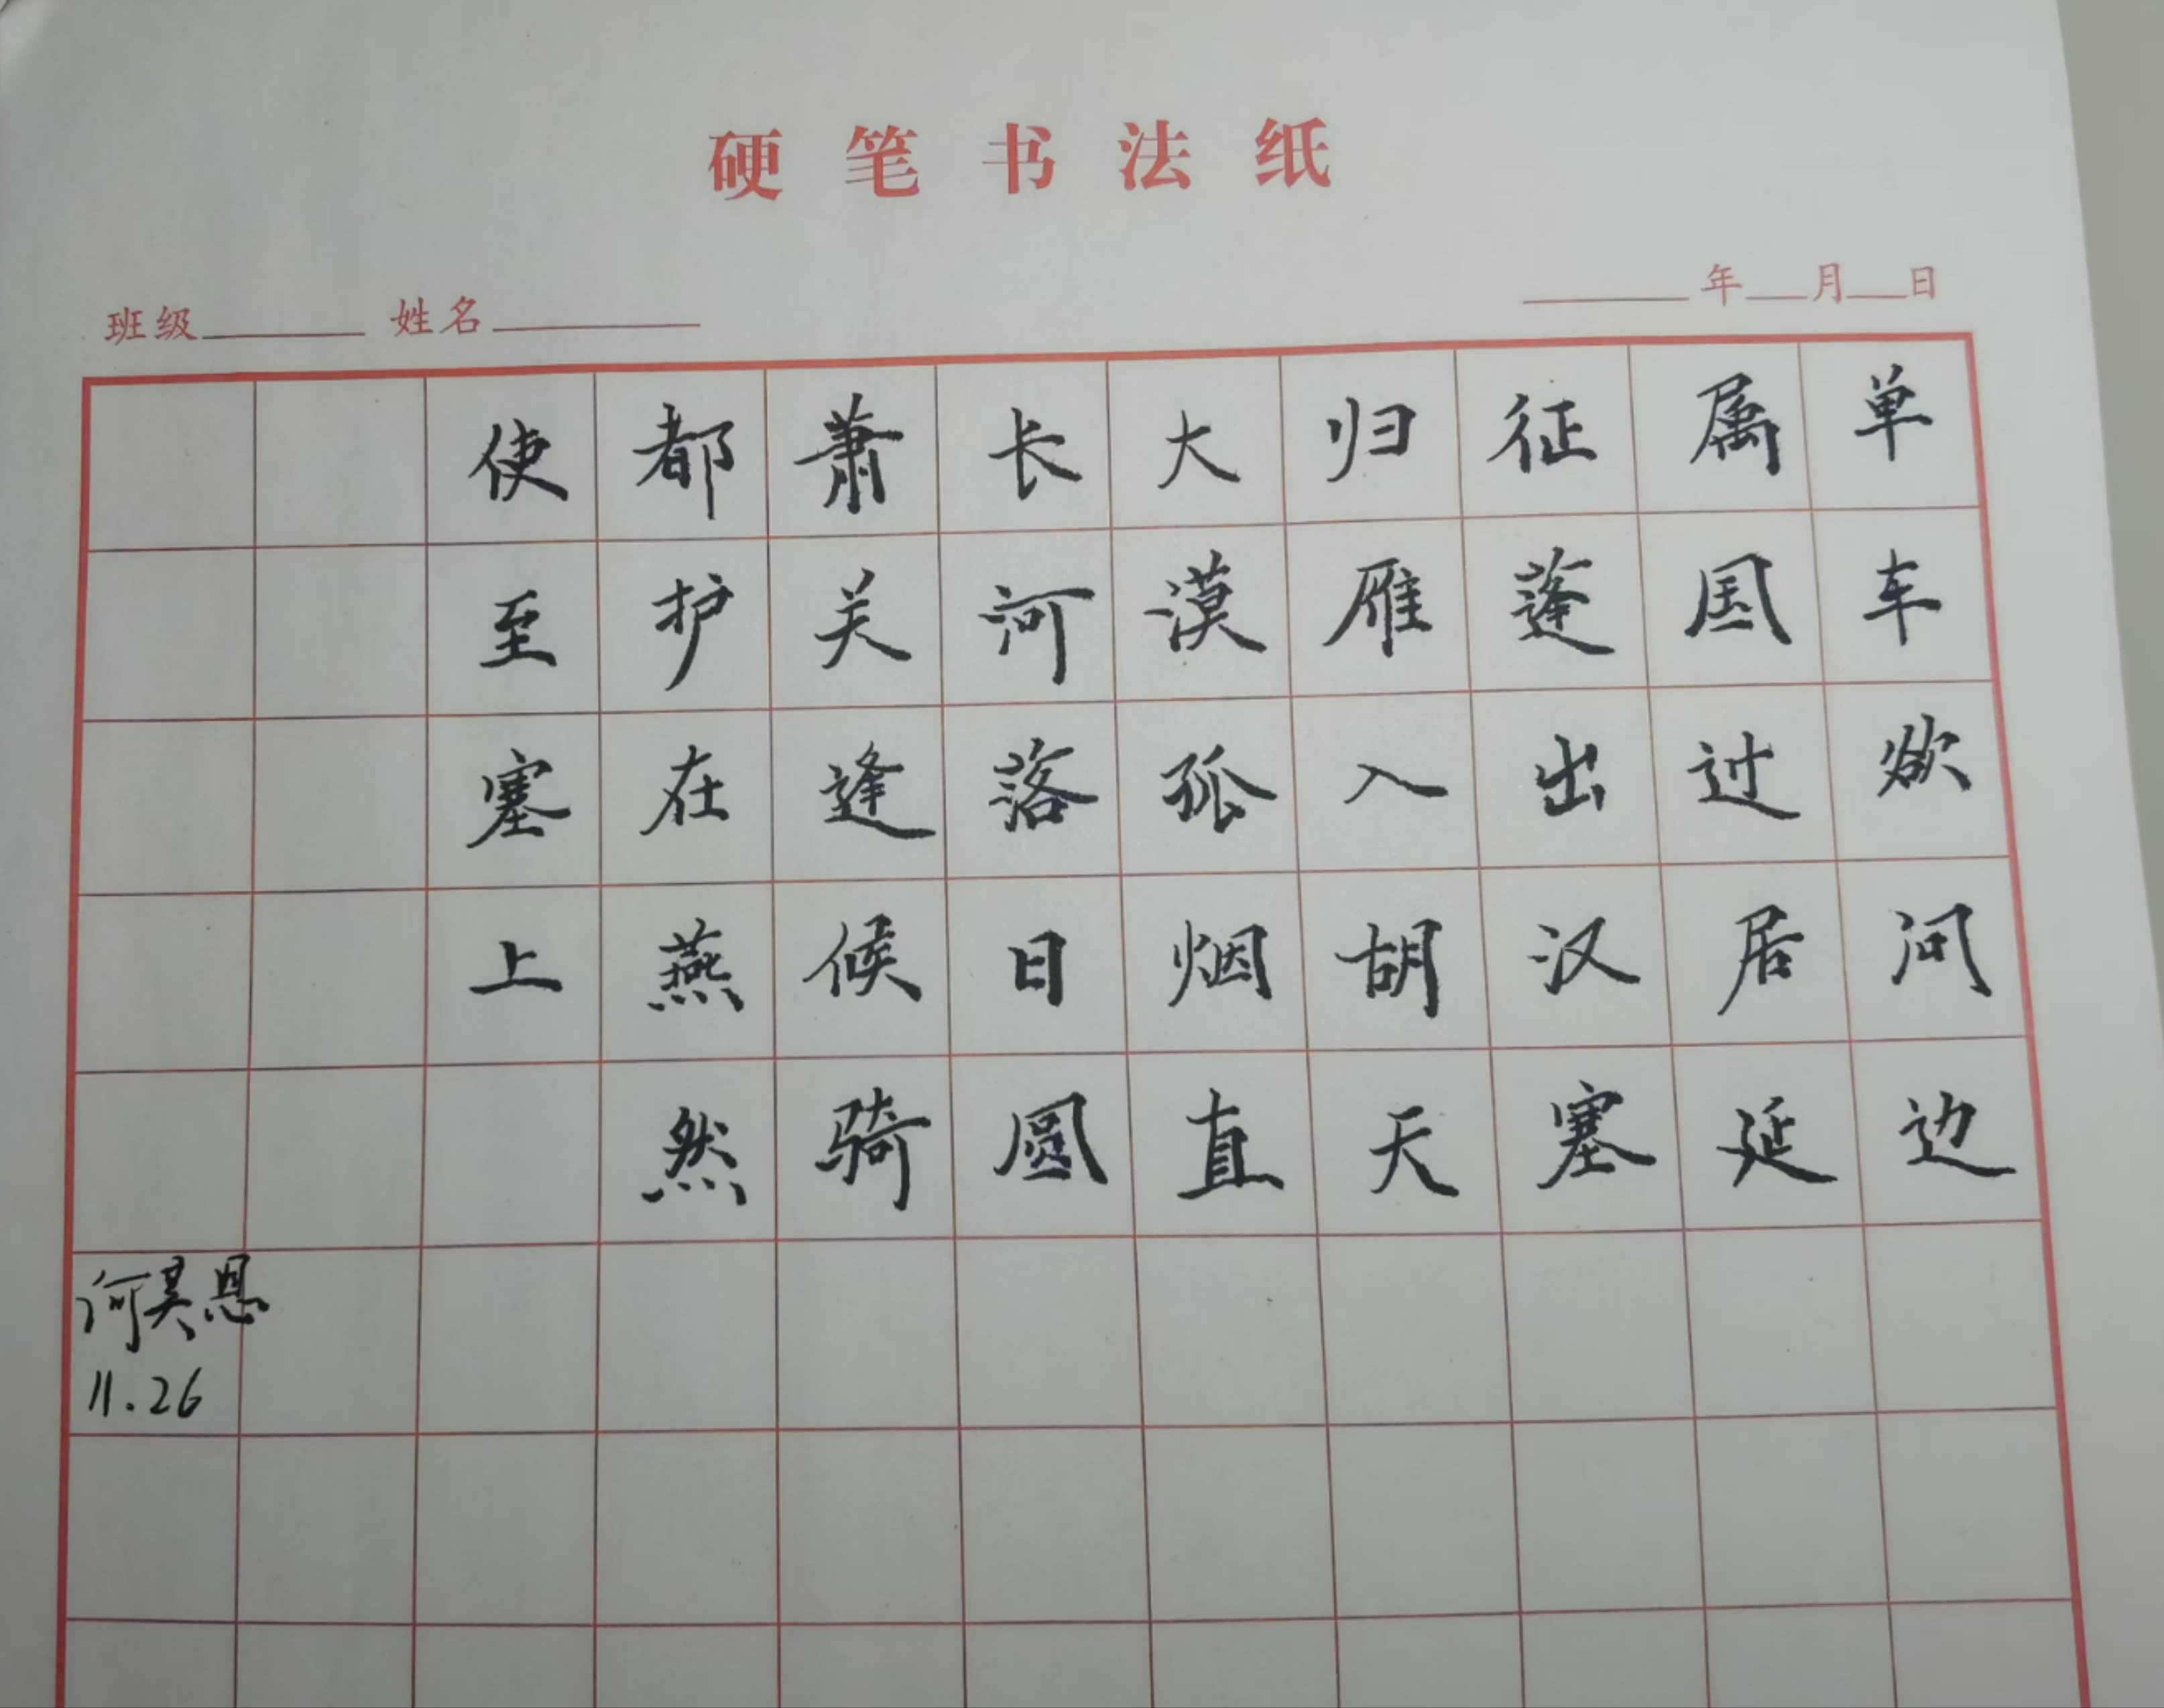 硬笔书法纸
班级 姓名 年 月 日
单车欲问边
属国过居延
征蓬出汉塞
归雁入胡天
大漠孤烟直
长河落日圆
萧关逢候骑
都护在燕然
使至塞上
何昊恩
11.26